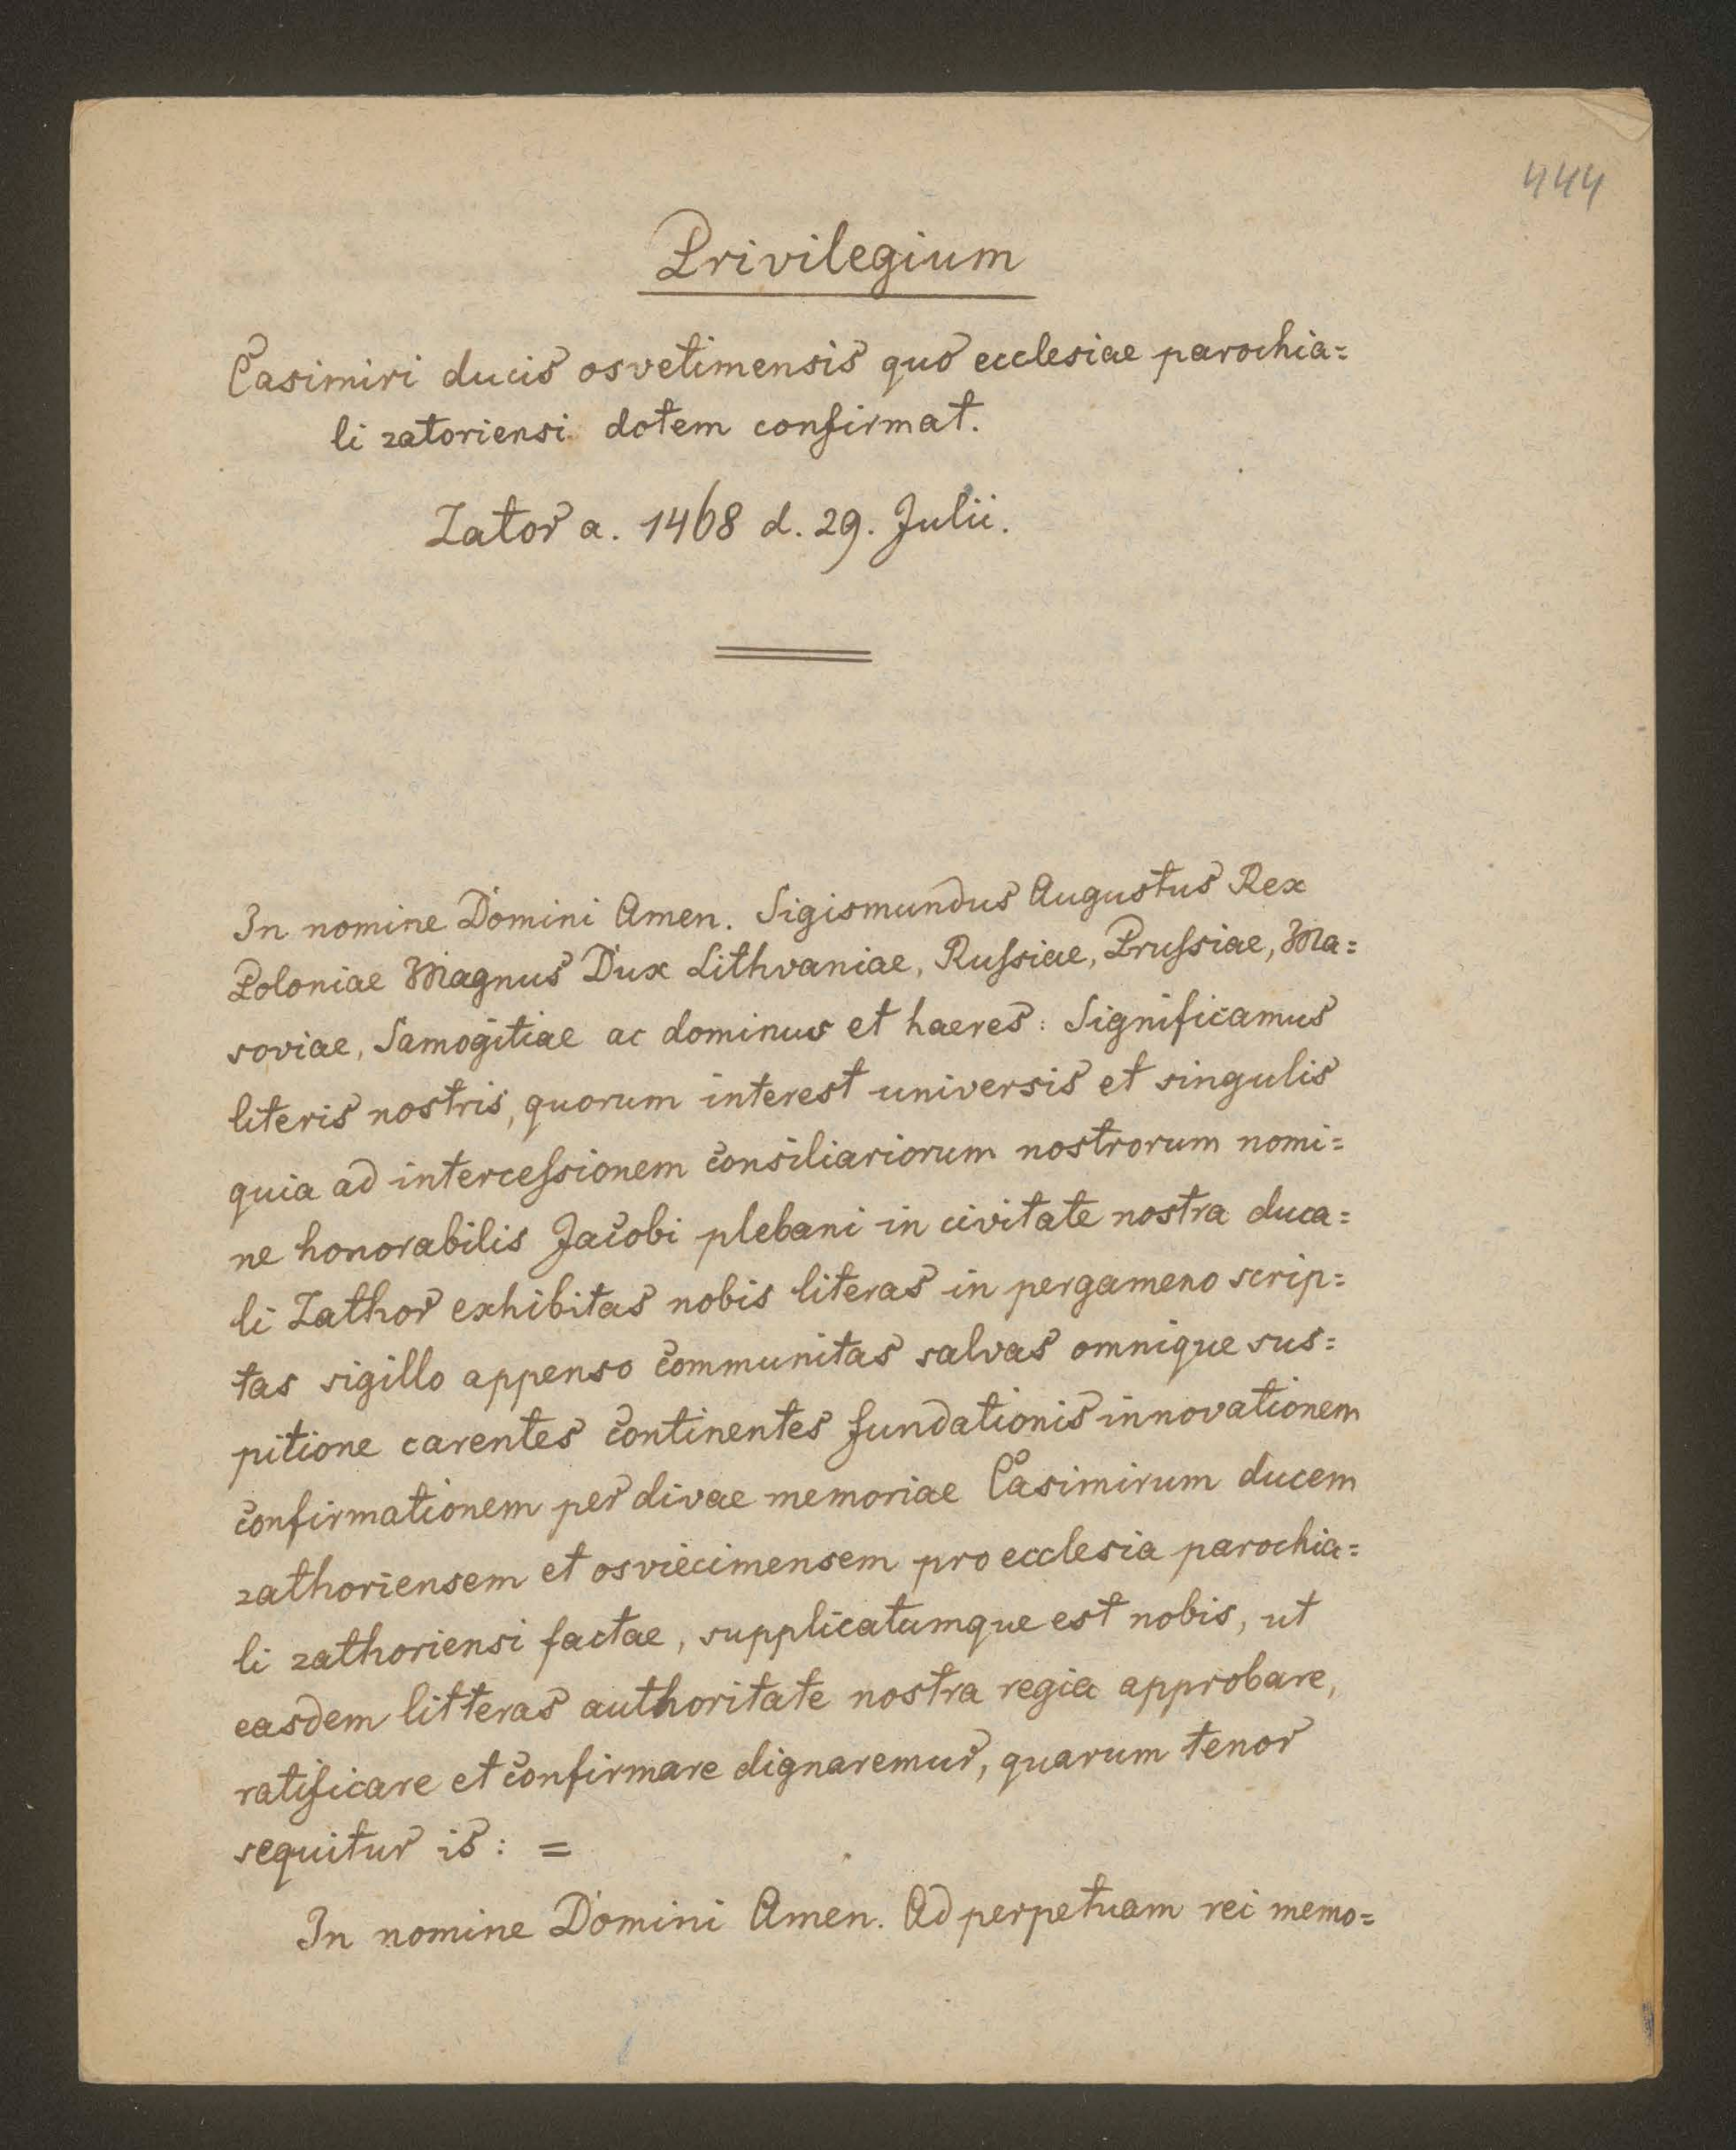 444
Privilegium
Casimiri ducis osvetimensis quo ecclesiae parochia=
li zatoriensi dotem confirmat.
Zator a. 1468 d. 29. Julii.
In nomine Domini Amen. Sigismundus Augustus Rex
Poloniae Magnus Dux Lithvaniae, Rußiae, Prußiae, Ma=
soviae, Samogitiae ac dominus et haeres: Significamus
literis nostris, quorum interest universis et singulis
quia ad interceßionem consiliariorum nostrorum nomi=
ne honorabilis Jacobi plebani in civitate nostra duca=
li Zathor exhibitas nobis literas in pergameno scrip=
tas sigillo appenso communitas salvas omnique sus=
pitione carentes continentes fundationis innovationem
confirmationem per divae memoriae Casimirum ducem
zathoriensem et osviecimensem pro ecclesia parochia=
li zathoriensi factae, supplicatumque est nobis, ut
easdem litteras authoritate nostra regia approbare,
ratificare et confirmare dignaremur, quarum tenor
sequitur is: =
In nomine Domini Amen. Ad perpetuam rei memo=